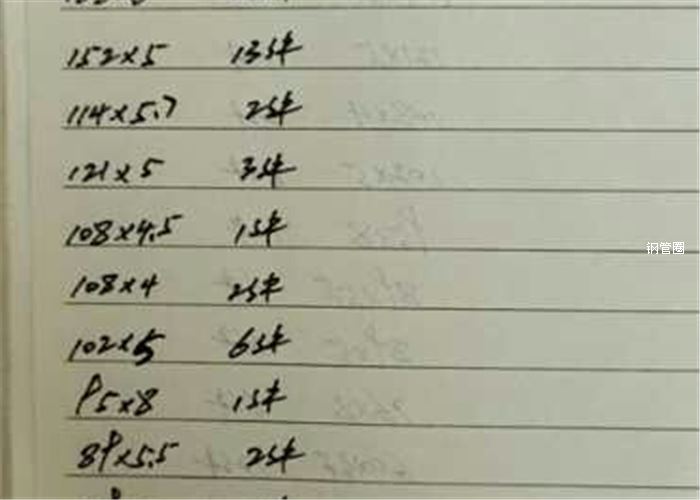 152×5 13件
114×5.7 2件
121×5 3件
108×4.5 1件
钢管圈
108×4 2件
102×5 6件
95×8 1件
89×5.5 2件